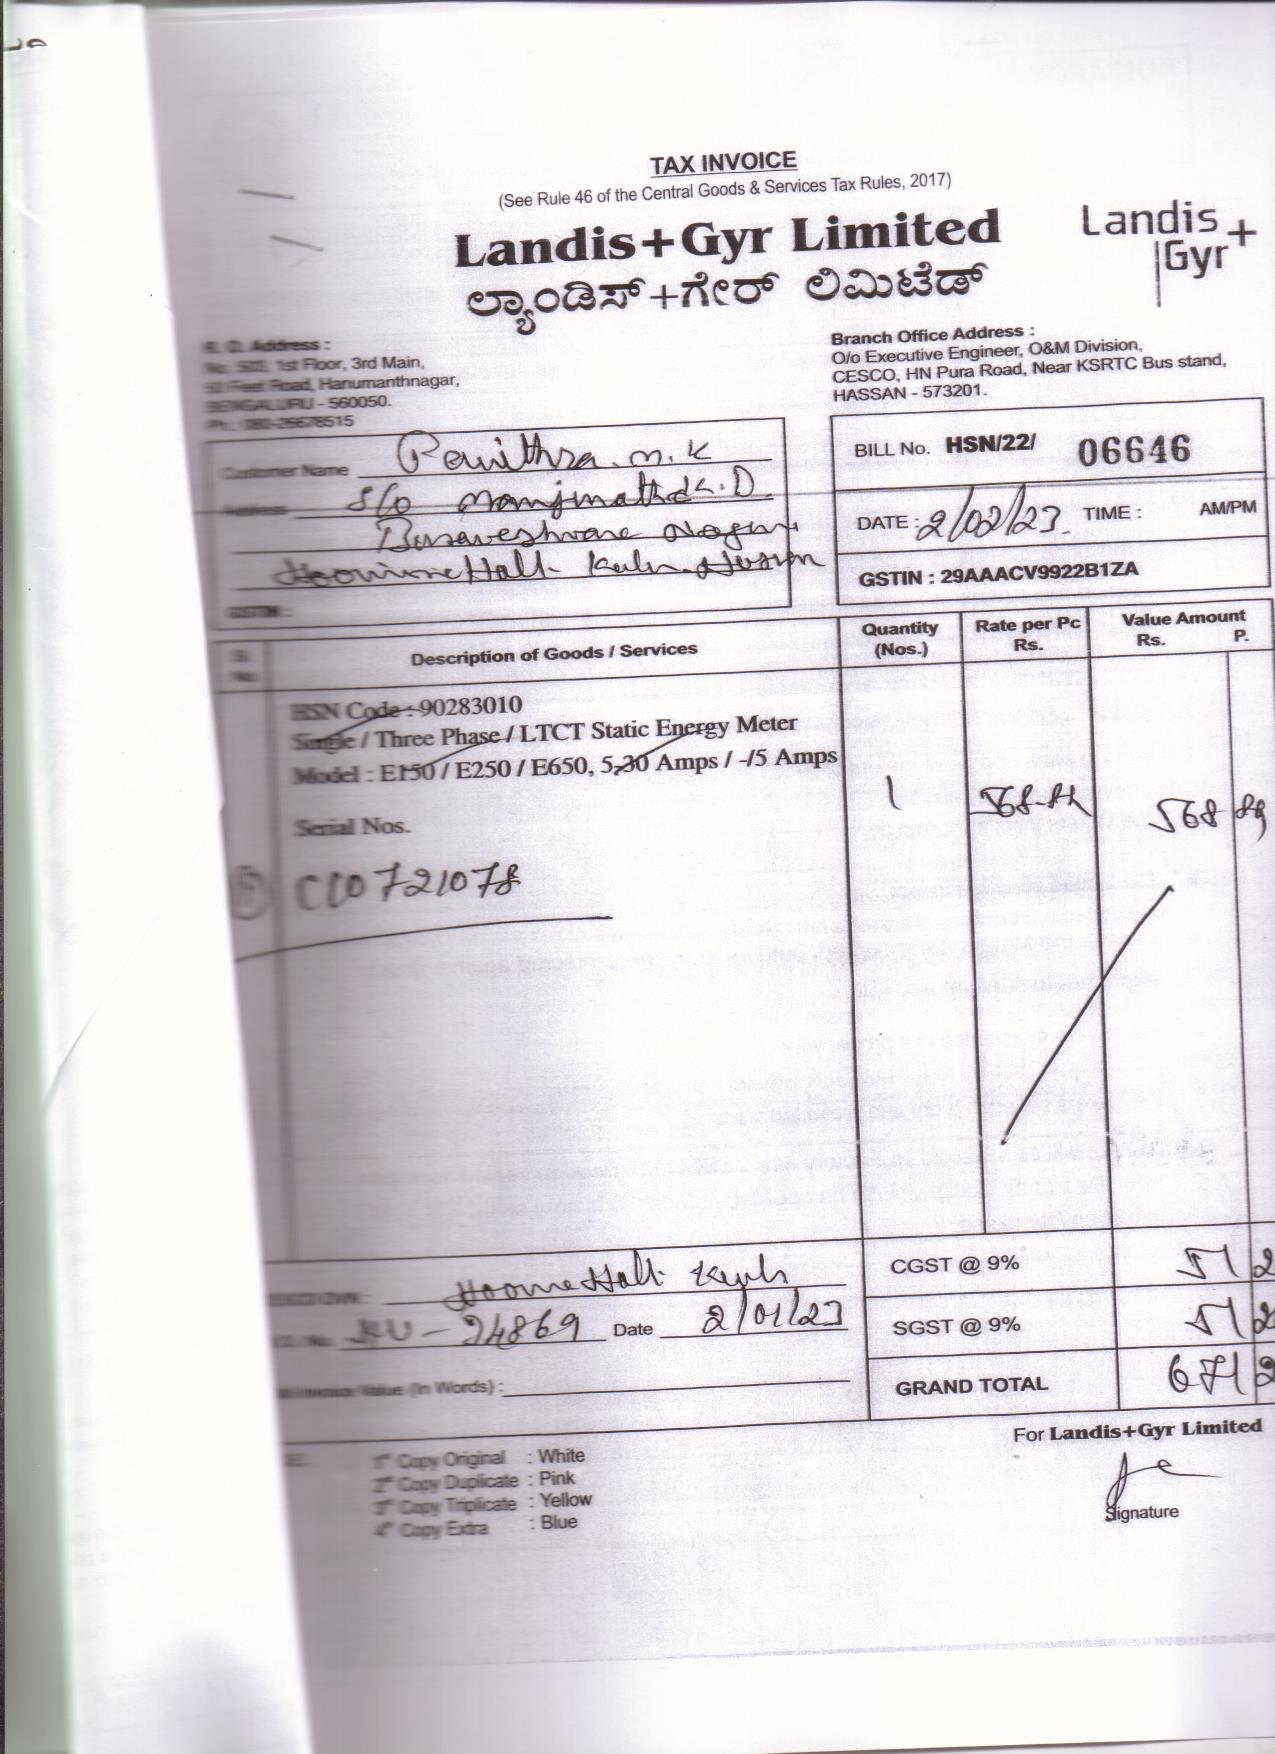 TAX INVOICE
(See Rule 46 of the Central Goods & Services Tax Rules, 2017)
Landis+Gyr Limited
ಲ್ಯಾಂಡಿಸ್+ಗೇರ್ ಲಿಮಿಟೆಡ್
Landis
Gyr+
R. O. Address :
1st Floor, 3rd Main,
Feet Road, Hanumanthnagar,
BENGALURU - 560050.
Ph.: 080-26678515
Branch Office Address :
O/o Executive Engineer, O&M Division,
CESCO, HN Pura Road, Near KSRTC Bus stand,
HASSAN - 573201.
Customer Name Pavithra. M. K
Address S/o Manjunath K. D
Basaveshwara Nagar
GSTIN :
BILL No. HSN/22/ 06646
DATE : 2/02/23. TIME : AM/PM
GSTIN : 29AAACV9922B1ZA
Sl. No. Description of Goods / Services Quantity (Nos.) Rate per Pc Rs. Value Amount Rs. P.
HSN Code : 90283010
Single / Three Phase / LTCT Static Energy Meter
Model : E150 / E250 / E650, 5-30 Amps / -/5 Amps
1 568 568
Serial Nos.
CC0721078
CGST @ 9% 51 2
24869 Date 2/01/23
SGST @ 9% 51 2
Value (In Words) :
GRAND TOTAL 671 2
For Landis+Gyr Limited
1st Copy Original : White
2nd Copy Duplicate : Pink
3rd Copy Triplicate : Yellow
4th Copy Extra : Blue
Signature